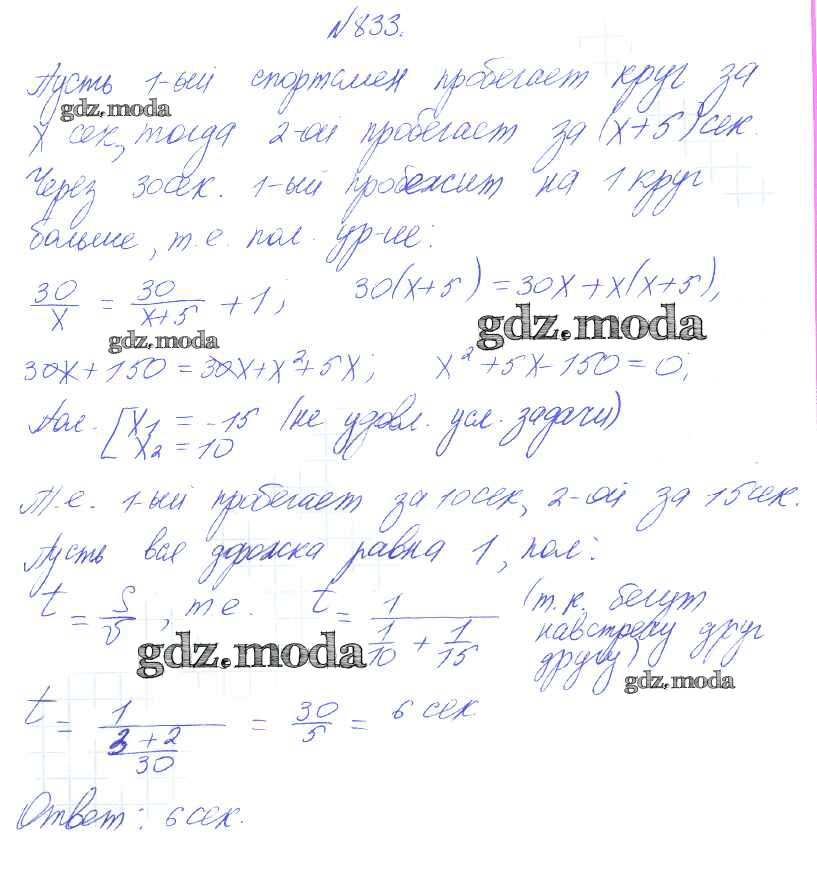 №833.
Пусть 1-ый спортсмен пробегает круг за
gdz.moda
x сек, тогда 2-ой пробегает за (x+5) сек.
Через 30сек. 1-ый пробежит на 1 круг
больше, т.е. пол. ур-ие:
30/x = 30/(x+5) + 1; 30(x+5) = 30x + x(x+5),
gdz.moda
gdz.moda
30x + 150 = 30x + x² + 5x; x² + 5x - 150 = 0;
Пол. [x₁ = -15 (не удовл. усл. задачи)
x₂ = 10
Т.е. 1-ый пробегает за 10сек, 2-ой за 15сек.
Пусть вся дорожка равна 1, пол:
t = S/v, т.е. t = 1/(1/10 + 1/15) (т.к. бегут
навстречу друг
другу)
gdz.moda
gdz.moda
t = 1/((3+2)/30) = 30/5 = 6 сек
Ответ: 6 сек.